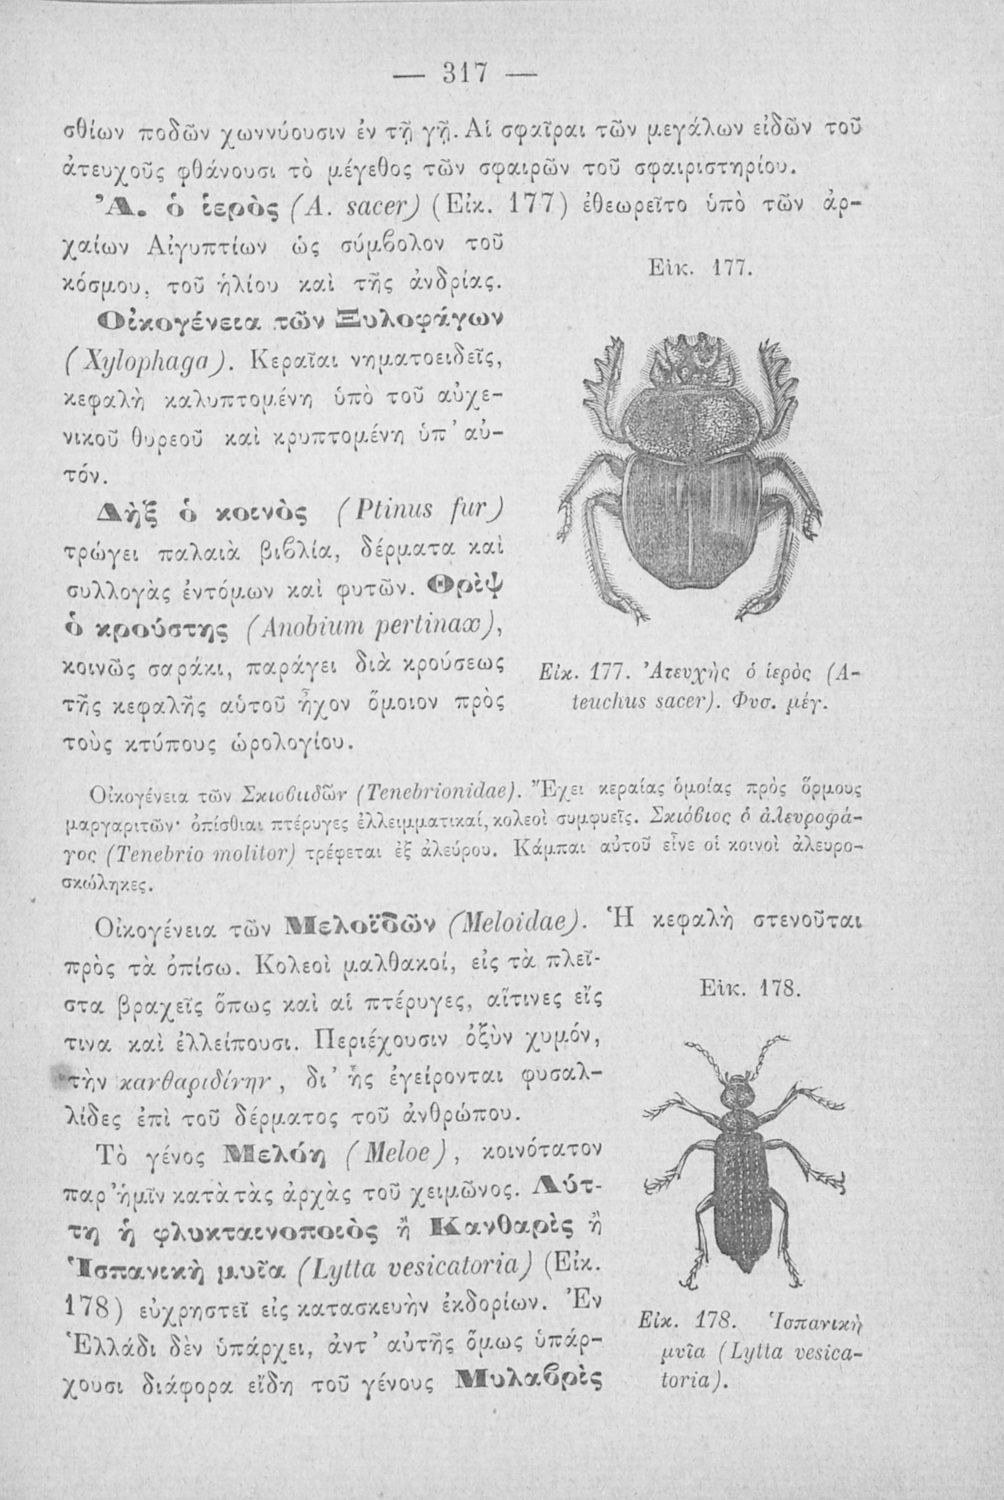 — 317 —
σθίων ποδῶν χωννύουσιν ἐν τῇ γῇ. Αἱ σφαῖραι τῶν μεγάλων εἰδῶν τοῦ
ἀτευχοῦς φθάνουσι τὸ μέγεθος τῶν σφαιρῶν τοῦ σφαιριστηρίου.
Ἀ. ὁ ἱερὸς (A. sacer) (Εἰκ. 177) ἐθεωρεῖτο ὑπὸ τῶν ἀρ-
χαίων Αἰγυπτίων ὡς σύμβολον τοῦ
κόσμου, τοῦ ἡλίου καὶ τῆς ἀνδρίας.
Οἰκογένεια τῶν Ξυλοφάγων
(Xylophaga). Κεραῖαι νηματοειδεῖς,
κεφαλὴ καλυπτομένη ὑπὸ τοῦ αὐχε-
νικοῦ θυρεοῦ καὶ κρυπτομένη ὑπ' αὐ-
τόν.
Δὴξ ὁ κοινὸς (Ptinus fur)
τρώγει παλαιὰ βιβλία, δέρματα καὶ
συλλογὰς ἐντόμων καὶ φυτῶν. Θρὶψ
ὁ κρούστης (Anobium pertinax),
κοινῶς σαράκι, παράγει διὰ κρούσεως
τῆς κεφαλῆς αὑτοῦ ἦχον ὅμοιον πρὸς
τοὺς κτύπους ὡρολογίου.
Εἰκ. 177.
Εἰκ. 177. Ἀτευχὴς ὁ ἱερὸς (A-
teuchus sacer). Φυσ. μέγ.
Οἰκογένεια τῶν Σκιοβιιδῶν (Tenebrionidae). Ἔχει κεραίας ὁμοίας πρὸς ὅρμους
μαργαριτῶν· ὀπίσθιαι πτέρυγες ἐλλειμματικαί, κολεοὶ συμφυεῖς. Σκιόβιος ὁ ἀλευροφά-
γος (Tenebrio molitor) τρέφεται ἐξ ἀλεύρου. Κάμπαι αὐτοῦ εἶνε οἱ κοινοὶ ἀλευρο-
σκώληκες.
Οἰκογένεια τῶν Μελοϊδῶν (Meloidae). Ἡ κεφαλὴ στενοῦται
πρὸς τὰ ὀπίσω. Κολεοὶ μαλθακοί, εἰς τὰ πλεῖ-
στα βραχεῖς ὅπως καὶ αἱ πτέρυγες, αἵτινες εἴς
τινα καὶ ἐλλείπουσι. Περιέχουσιν ὀξὺν χυμόν,
τὴν κανθαριδίνην, δι' ἧς ἐγείρονται φυσαλ-
λίδες ἐπὶ τοῦ δέρματος τοῦ ἀνθρώπου.
Τὸ γένος Μελόη (Meloe), κοινότατον
παρ' ἡμῖν κατὰ τὰς ἀρχὰς τοῦ χειμῶνος. Λύτ-
τη ἡ φλυκταινοποιὸς ἢ Κανθαρὶς ἢ
Ἱσπανικὴ μυῖα (Lytta vesicatoria) (Εἰκ.
178) εὐχρηστεῖ εἰς κατασκευὴν ἐκδορίων. Ἐν
Ἑλλάδι δὲν ὑπάρχει, ἀντ' αὐτῆς ὅμως ὑπάρ-
χουσι διάφορα εἴδη τοῦ γένους Μυλαβρὶς
Εἰκ. 178.
Εἰκ. 178. Ἱσπανικὴ
μυῖα (Lytta vesica-
toria).